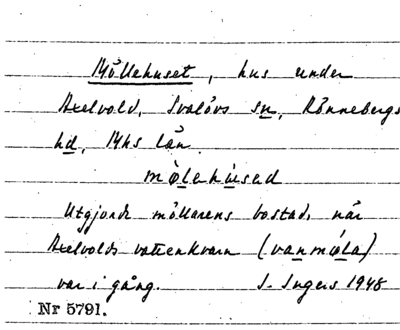 Möllehuset, hus under
Axelvold, Svalövs sn, Rönnebergs
hd, Mhs län.
mø̀lehúsed
Utgjorde möllarens bostad, när
Axelvolds vattenkvarn (vanmø̀la)
var i gång. I. Ingers 1948
Nr 5791.